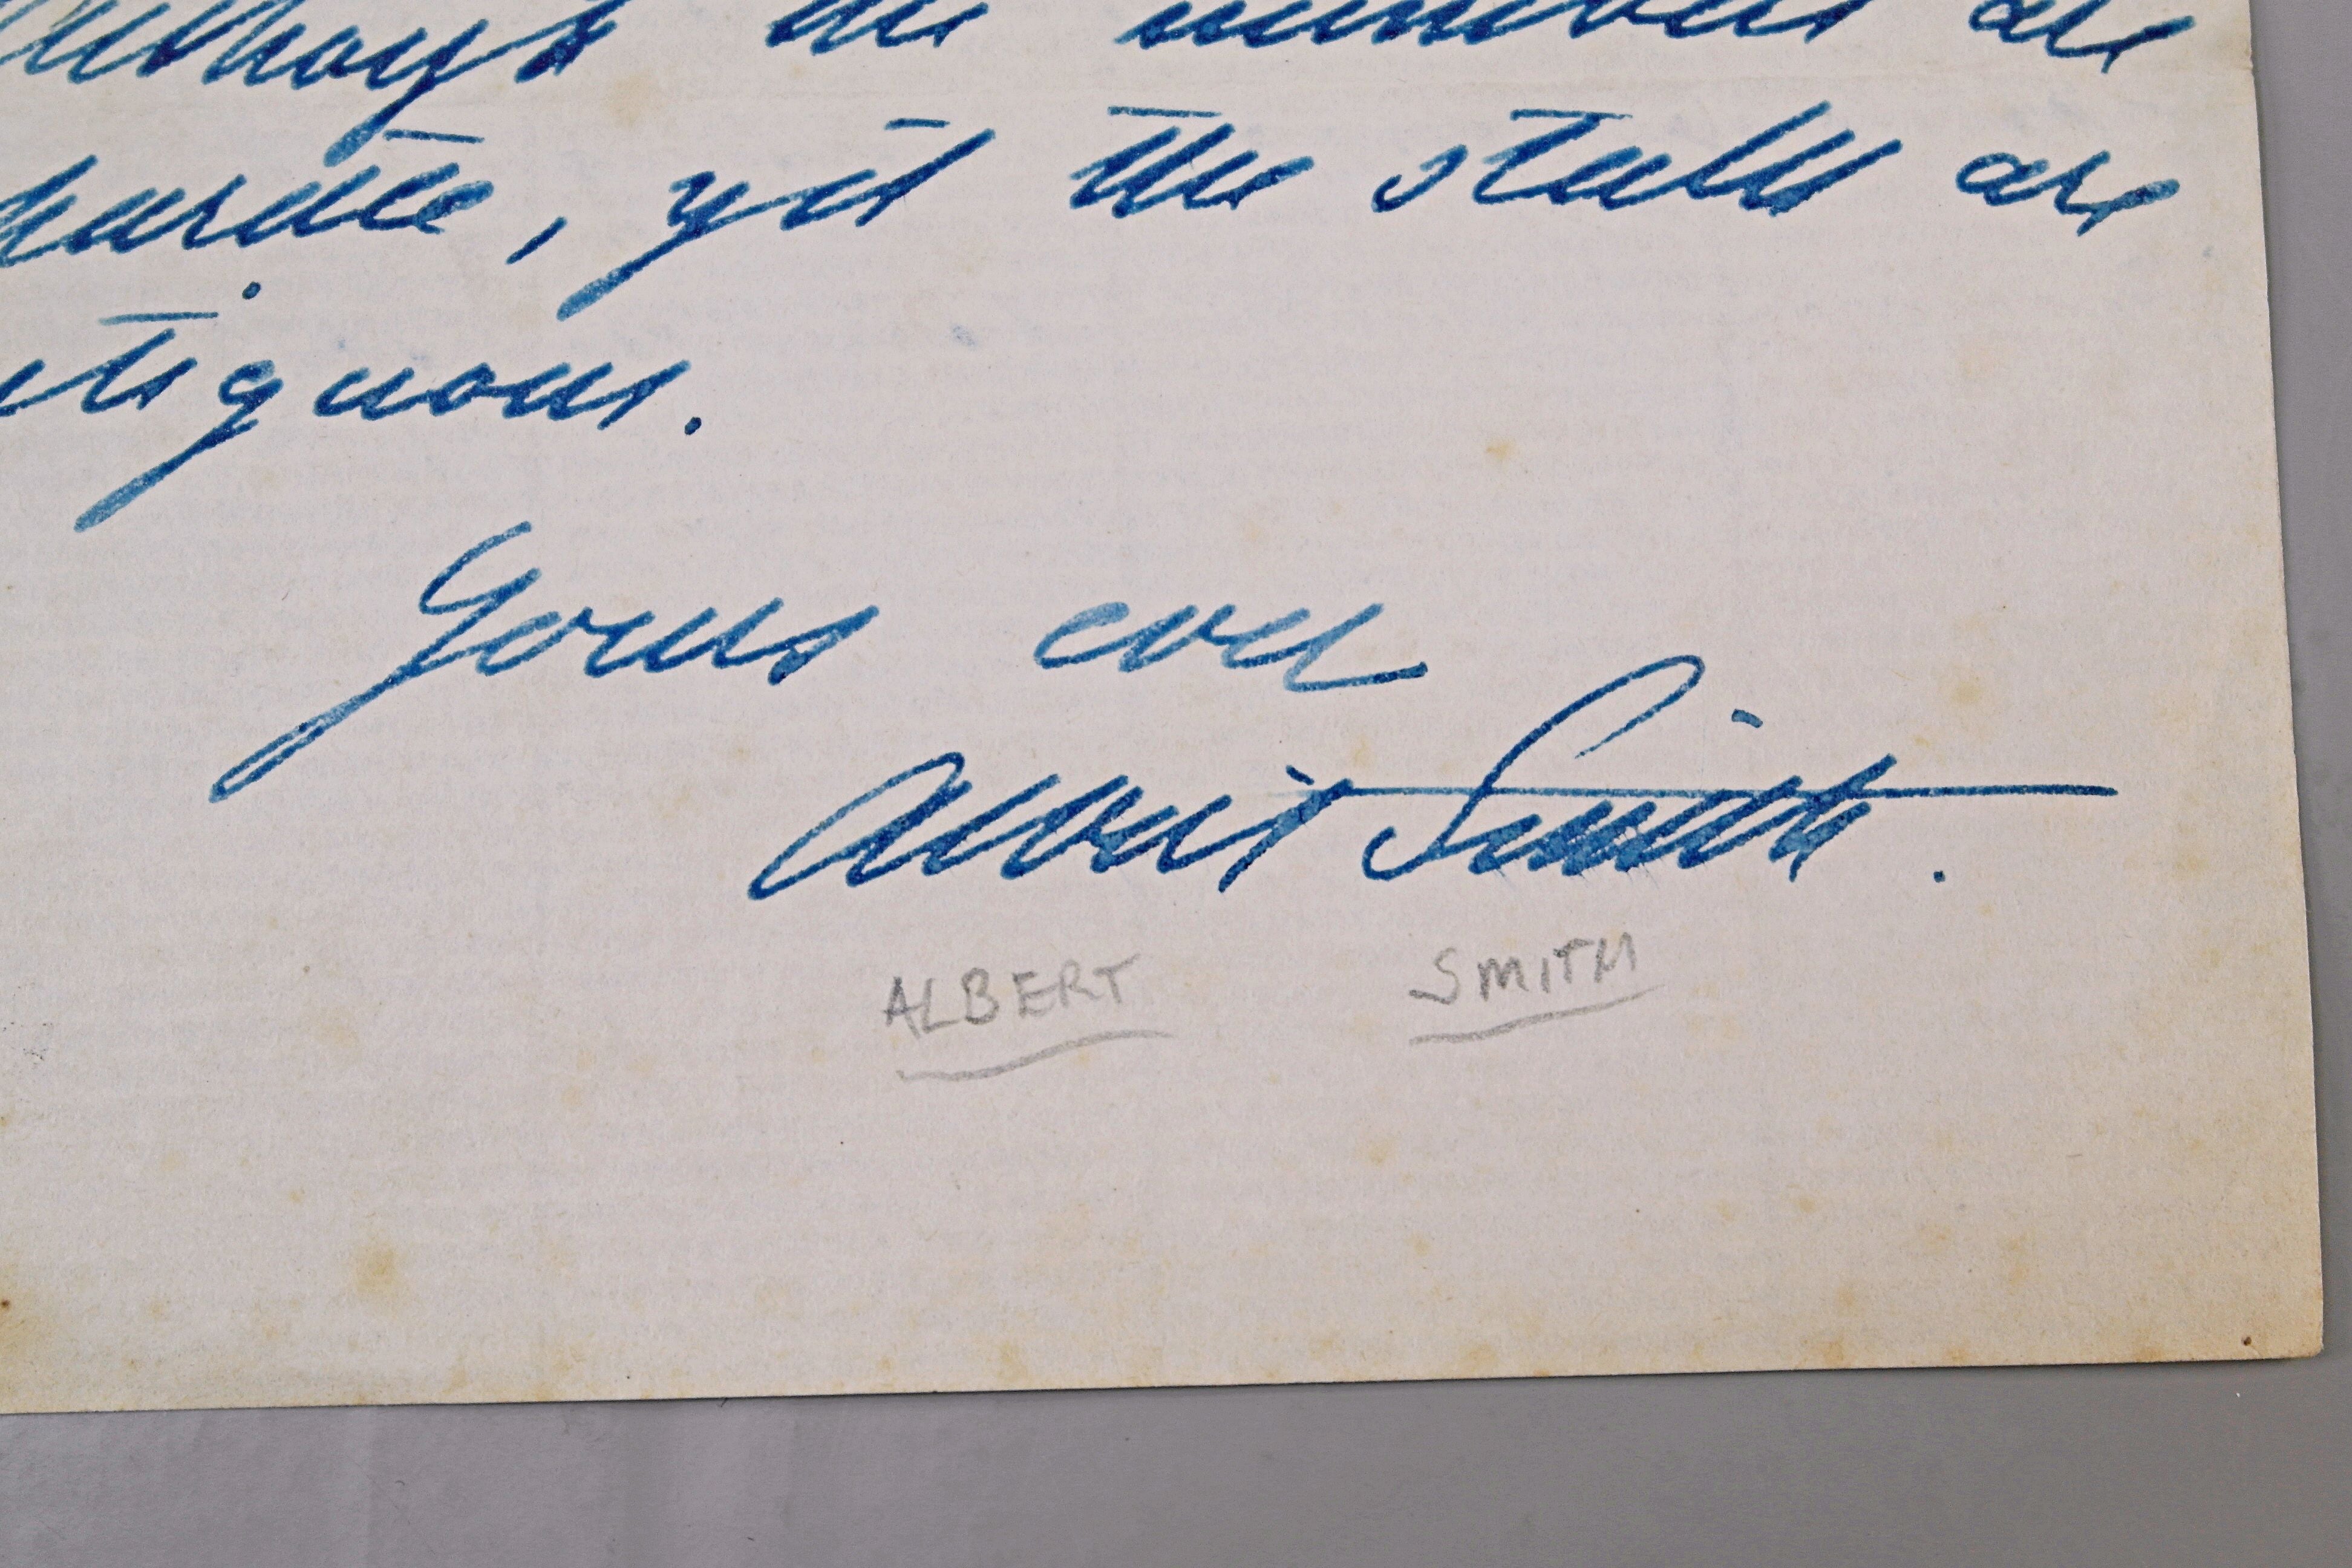 Although the numbers are
parate, yet the stalls are
ntiguous.
Yours ever
Albert Smith.
ALBERT SMITH